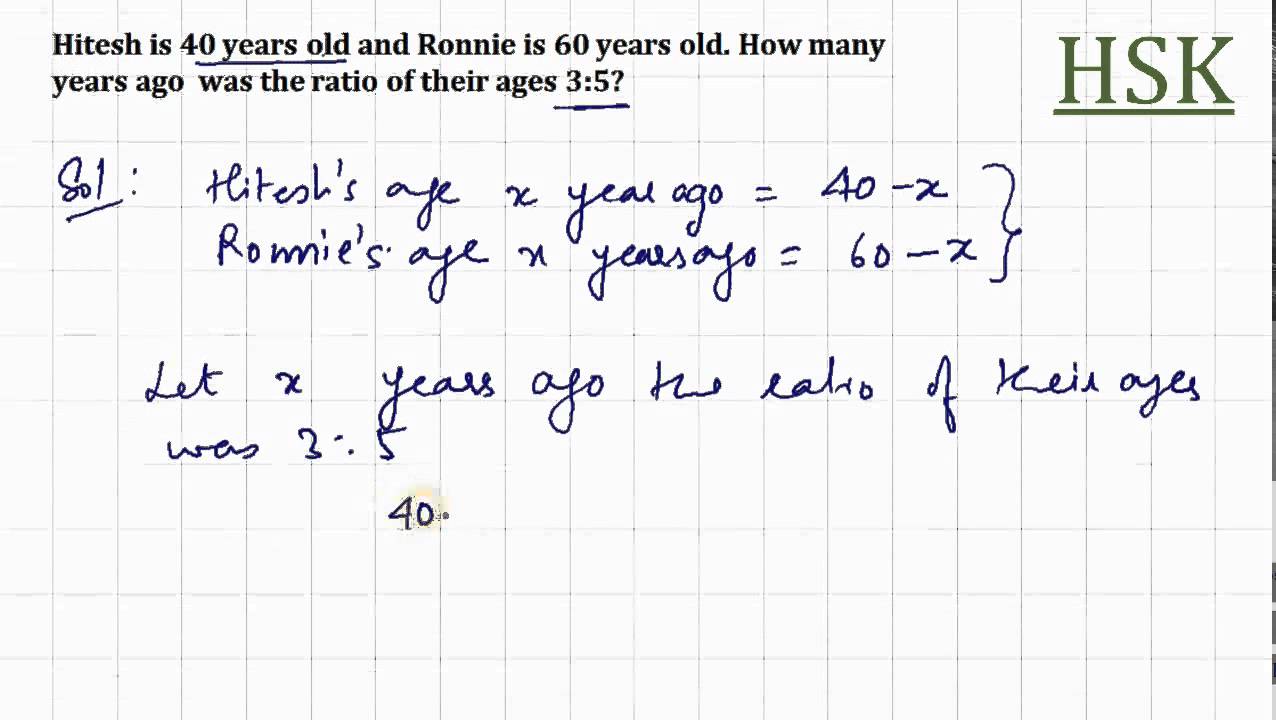 Hitesh is 40 years old and Ronnie is 60 years old. How many
years ago was the ratio of their ages 3:5?
HSK
Sol : Hitesh's age x year ago = 40 - x
Ronnie's age x years ago = 60 - x
Let x years ago the ratio of their ages
was 3 : 5
40